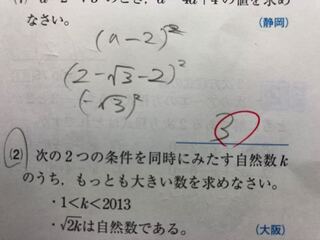 なさい。
(静岡)
(a-2)²
(2-√3-2)²
(-√3)²
3
(2) 次の2つの条件を同時にみたす自然数k
のうち、もっとも大きい数を求めなさい。
・1<k<2013
・√2kは自然数である。
(大阪)